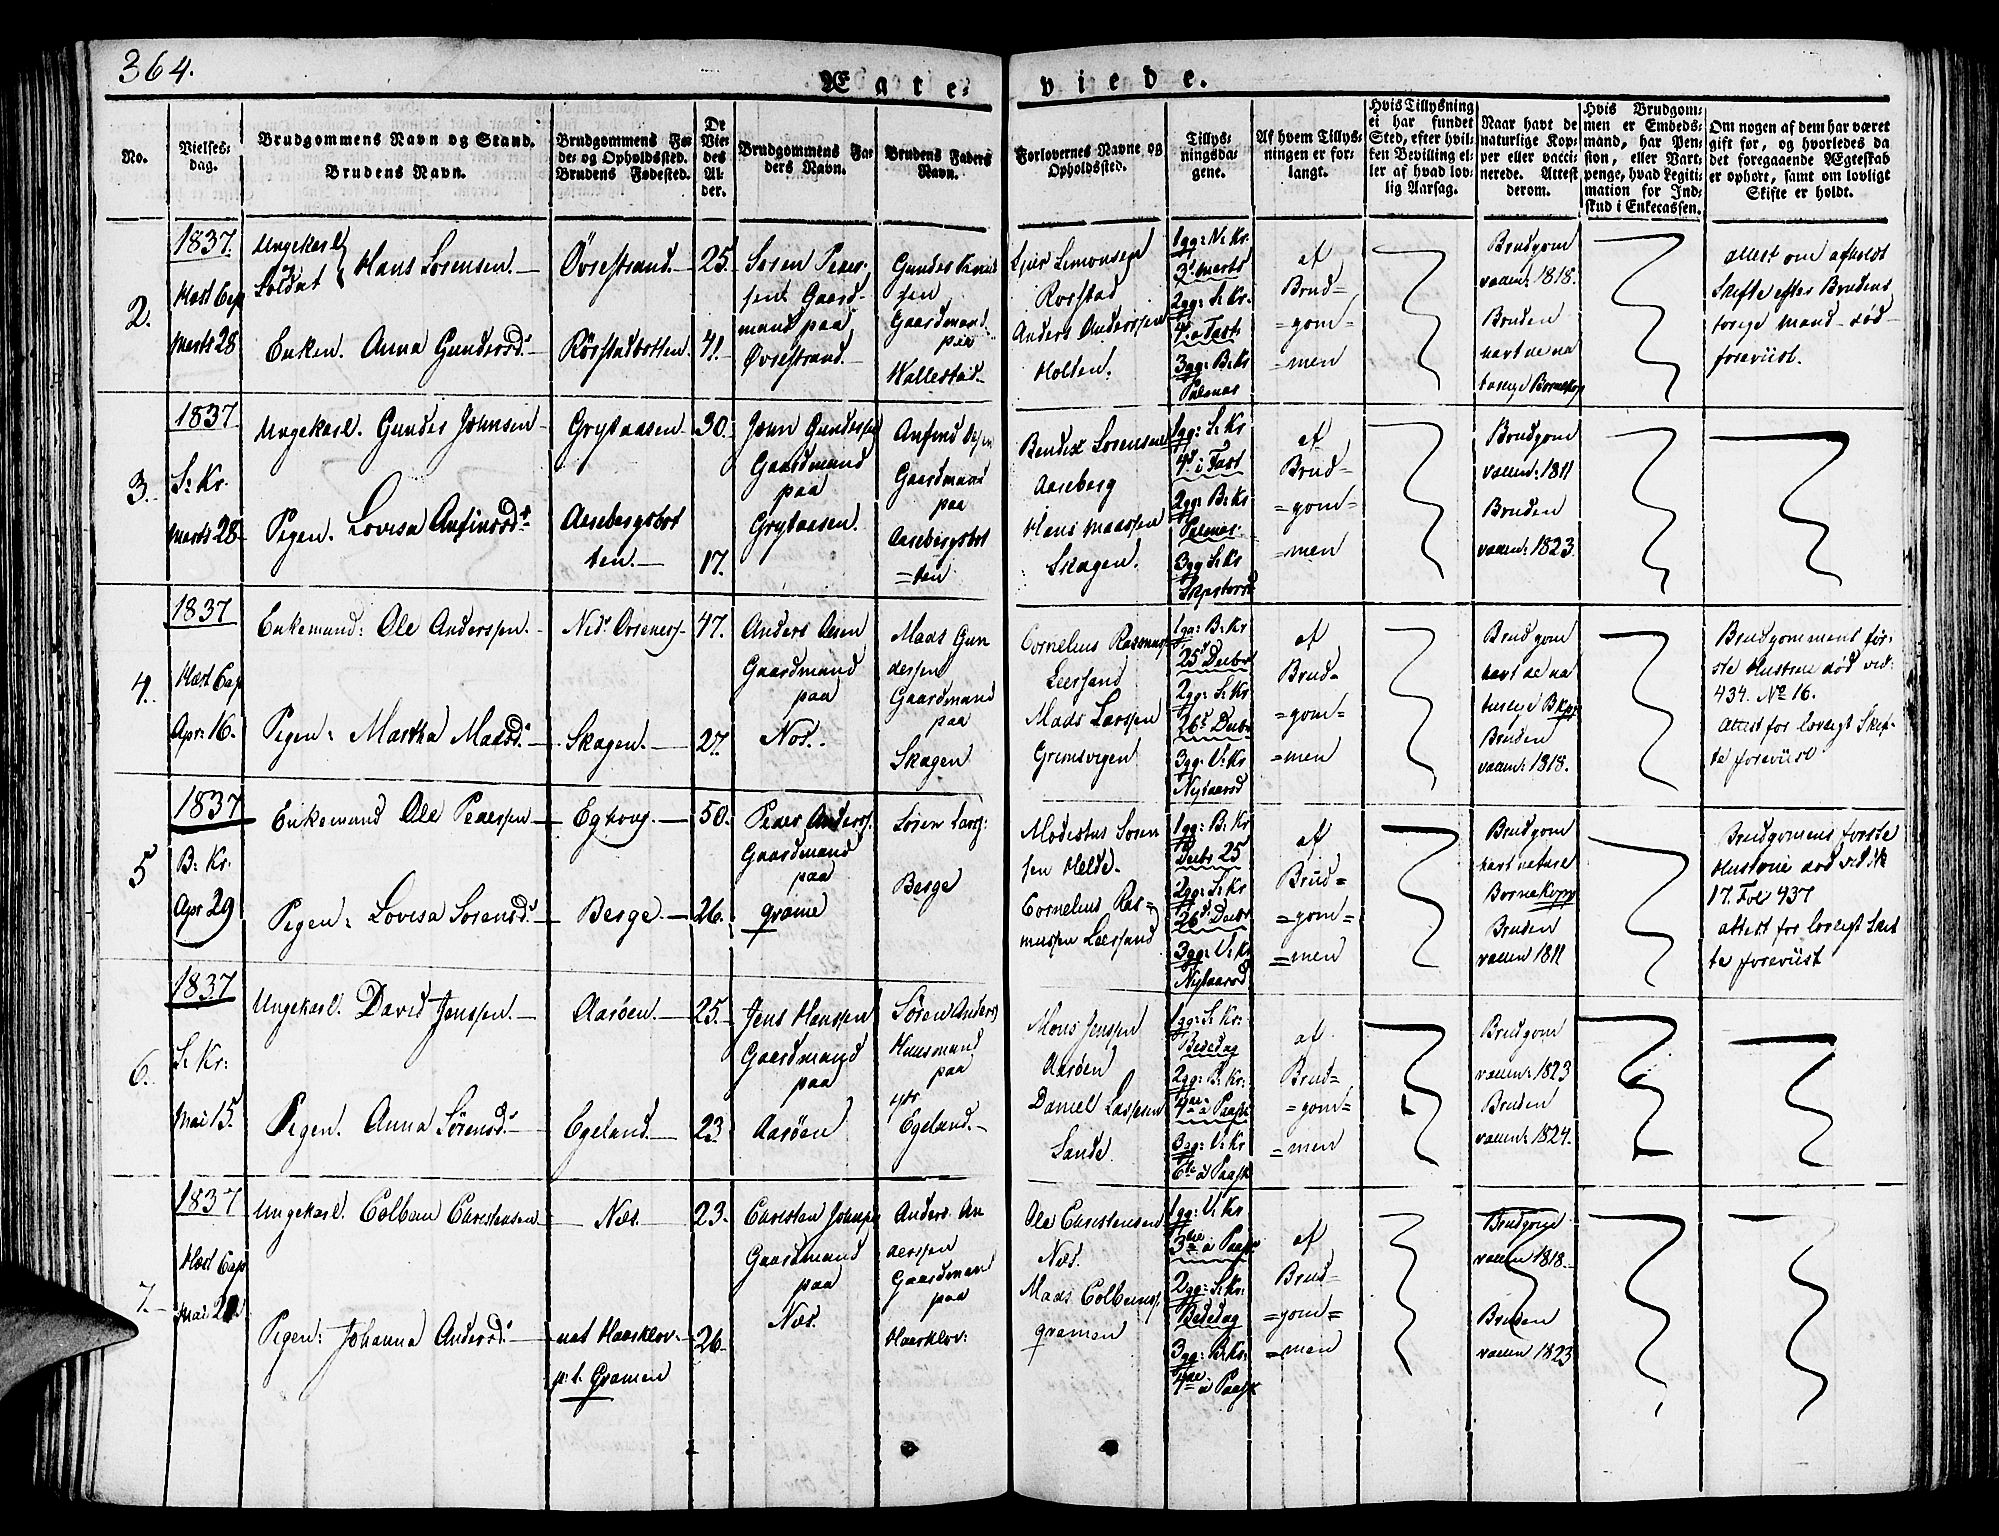 364.
Ægte-
viede.
No.
Vielses-
dag.
Brudgommens Navn og Stand.
Brudens Navn.
Brudgommens Fø-
de- og Opholdssted.
Brudens Fødested.
De
Vie-
des
Al-
der.
Brudgommens Fa-
ders Navn.
Brudens Faders
Navn.
Forlovernes Navne og
Opholdssted.
Tillys-
ningsda-
gene.
Af hvem Tillys-
ningen er for-
langt.
Hvis Tillysning
ei har fundet
Sted, efter hvil-
ken Bevilling el-
ler af hvad lov-
lig Aarsag.
Naar havt de
naturlige Kop-
per eller vacci-
nerede. Attest
derom.
Hvis Brudgom-
men er Embeds-
mand, har Pen-
sion, eller Vart-
penge, hvad Legiti-
mation for Ind-
skud i Enkecassen.
Om nogen af dem har været
gift før, og hvorledes da
det foregaaende Ægteskab
er ophørt, samt om lovligt
Skifte er holdt.
2.
1837.
Høst Cap
Marts 28
Ungekarl
og
Soldat
Hans Sørensen.
Enken. Anna Gundersd.
Øvrestrand.
Rørstadbotten.
25.
41.
Søren Peder-
sen Gaard-
mand paa
Øvrestrand.
Gunder Knud
sen
Gaardmand
paa
Vallestad
Sjur Simonsen
Rørstad
Anders Anderssen
Holten.
1gg: N: Kr.
3d Marts
2gg: S: Kr.
4d i Fast:
3gg: B: Kr
Palmas
af
Brud-
=gom=
=men
Brudgom
vacen: 1818.
Bruden
havt de na
turlige Børnekop
Attest om afholdt
Skifte efter Brudens
forige Mand død
foreviist.
3.
1837
S: Kr.
Marts 28
Ungekarl. Gunder Johnsen
Pigen. Lovisa Anfinsd.
Grytaasen
Aasebergsbot
ten.
30.
17.
John Gunderssen
Gaardmand
paa
Grytaasen.
Anfind Olsen
Gaardmand
paa
Aasebergsbot
=ten
Bendix Sørensen
Aaseberg
Hans Maassen
Skagen.
1gg: S: Kr
4d i Fast
2gg: B: Kr
Palmas
3gg S: Kr
Skjertorsd
af
Brud=
=gom=
=men
Brudgom
vacen: 1811
Bruden
vacen: 1823.
4.
1837
Høst Cap
Apr: 16.
Enkemand: Ole Anderssen.
Pigen: Martha Maasd.
Skagen.
47.
27.
Anders Olsen
Gaardmand
paa
Næs.
Mads Gun
derssen
Gaardmand
paa
Skagen
Cornelius Rasmuss
Leersand
Mads Larssen
Grimsvigen
1gg: B: Kr
25d Decbr
2gg: S: Kr
26d Decbr
3gg: V: Kr
Nytaarsd
af
Brud-
=gom=
=men
Brudgom
havt de na
turlige BKop
Bruden
vacen: 1818.
Brudgommens før-
ste Hustrue død vid:
434. No 16.
Attest for lovligt Skif-
te foreviist
5
1837
B: Kr.
Apr 29
Enkemand Ole Pederssen
Pigen: Lovisa Sørensd.
Berge.
50.
26.
Peder Anderss.
Gaardmand
paa
Grame
Søren Larss:
Berge
Modestus Søren
sen Helde.
Cornelius Ras=
mussen Leersand
1gg: B: Kr
Decbr 25
2gg: S: Kr
26d Decbr
3gg: V: Kr
Nytaarsd
af
Brud=
=gom=
=men
Brudgom
havt
BørneKopp
Bruden
vacen 1811
Brudgomens første
Hustrue død vid
17. Fol 437
attest for lovligt Skif
te foreviist
6.
1837
S: Kr:
Mai 15.
Ungekarl. David Jenssen.
Pigen. Anna Sørensd.
Aarøen.
Egeland.
25.
23.
Jens Hanssen
Gaardmand
paa
Aarøen
Søren Anders
Huusmand
paa
Egeland.
Mons Jenssen
Aarøen
Daniel Larssen
Sande.
1gg: S: Kr:
Bededag
2gg: B: Kr:
4de a Paask
3gg: V: Kr
6te a Paask
af
Brud=
=gom=
=men
Brudgom
vacen: 1823
Bruden
vacen: 1824.
7.
1837
Høst Cap
Mai 21
Ungekarl. Colban Christensen
Pigen: Johanna Andersd.
Næs.
nat Haarklov:
p: t. Gramen
23.
26.
Christen Johns
Gaardmand
paa
Næs.
Anders An
derssen
Gaardmand
paa
Haarklov:
Ole Christensen
Næs.
Mads Colbens.
Gramen
1gg: V: Kr
3de a Paask
2gg: S: Kr:
Bededag
3gg: B: Kr:
4de a Paask
af
Brud=
=gom=
=men
Brudgom
vacen 1818.
Bruden
vacen 1823